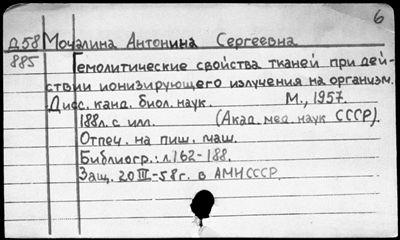 б
Д58 Мочалина Антонина Сергеевна
885 Гемолитические свойства тканей при дей-
ствии ионизирующего излучения на организм.
Дисс. канд. биол. наук. М., 1957.
188л. с илл. (Акад. мед. наук СССР).
Отпеч. на пиш. маш.
Библиогр.: л.162-188.
Защ. 20 III-58г. в АМН СССР.